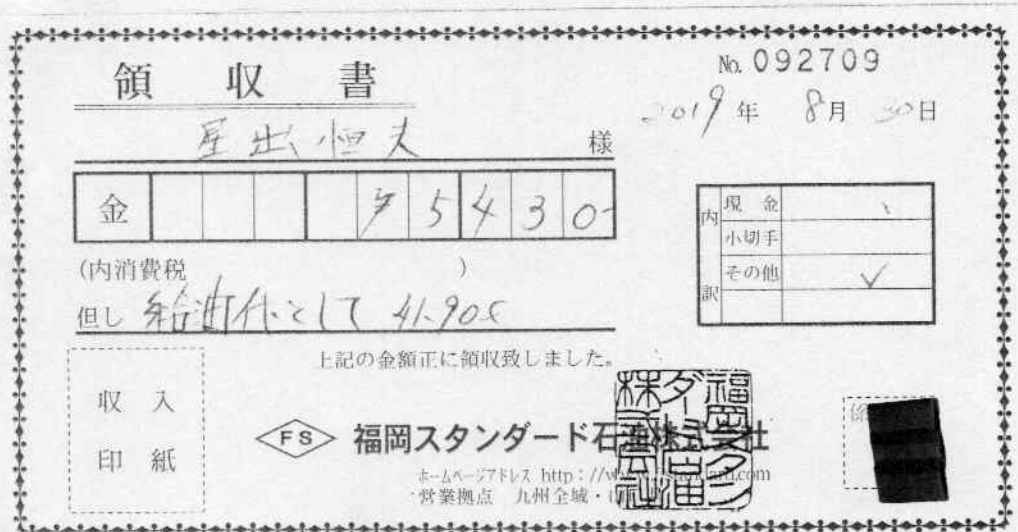 No. 092709
領 収 書
2019年 8月 30日
星出 恒夫 様
金 ¥5430-
(内消費税 )
但し 給油代として 41.90ℓ
内訳
現金
小切手
その他 ✓
上記の金額正に領収致しました。
収入
印紙
FS 福岡スタンダード石油株式会社
ホームページアドレス http://w
営業拠点 九州全域・
係